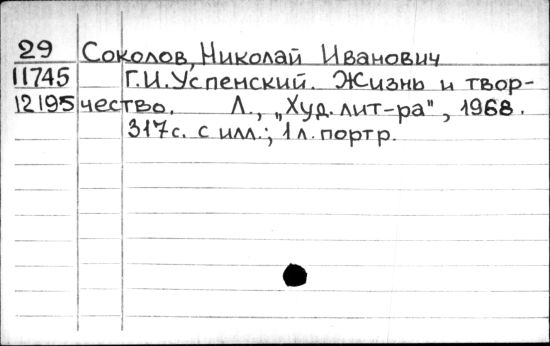 29 Соколов, Николай Иванович
11745 Г.И.Успенский. Жизнь и твор-
12195 чество. Л., „Худ. лит-ра", 1968.
317с. с илл.; 1л. портр.